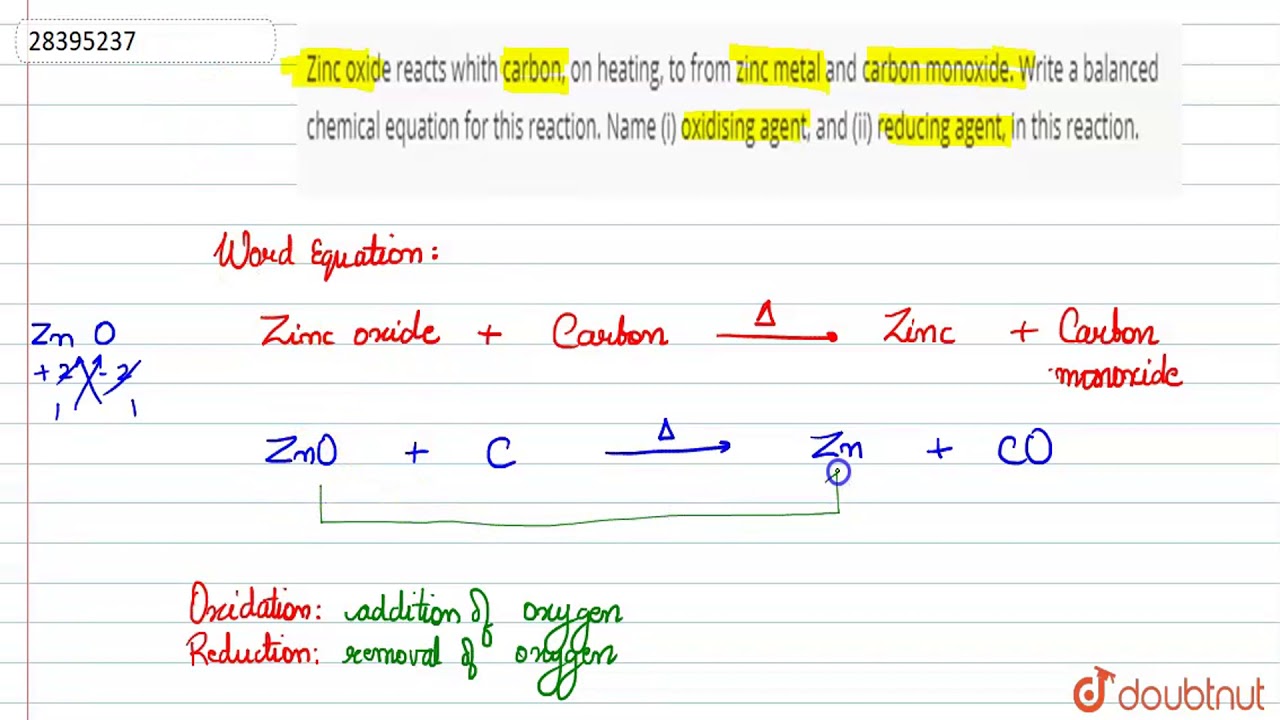 28395237
Zinc oxide reacts whith carbon, on heating, to from zinc metal and carbon monoxide. Write a balanced
chemical equation for this reaction. Name (i) oxidising agent, and (ii) reducing agent, in this reaction.
Word Equation:
Zinc oxide + Carbon Δ→ Zinc + Carbon
monoxide
Zn O
+2 -2
1 1
ZnO + C Δ→ Zn + CO
Oxidation: addition of oxygen
Reduction: removal of oxygen
doubtnut